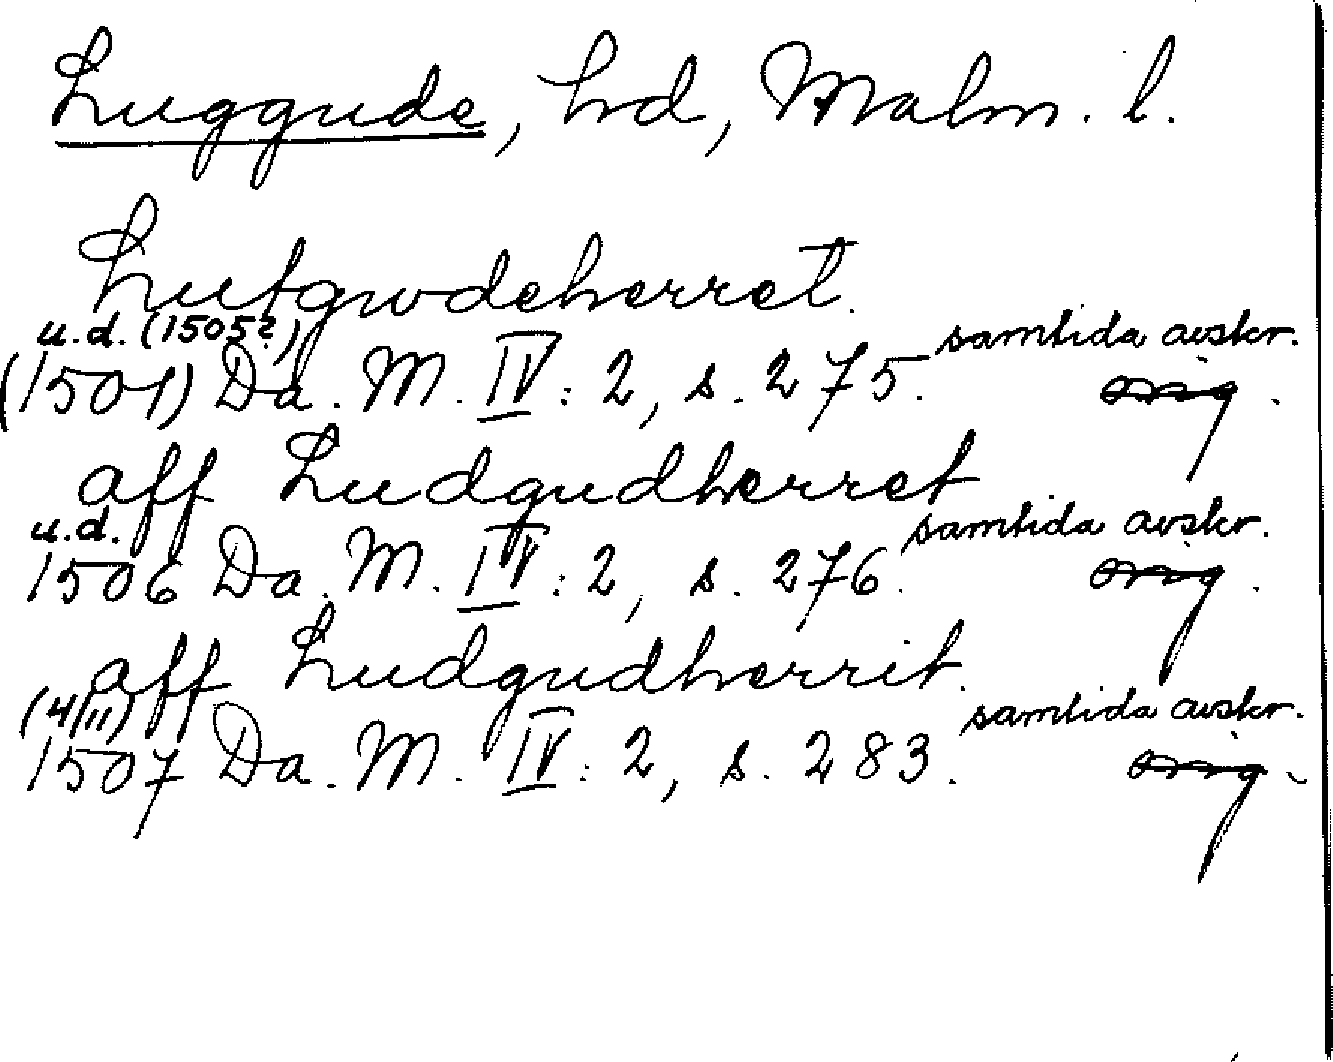 Luggude, hd, Malm. l.
Lutgwdeherret.
u.d. (1505?) samtida avskr.
(1501) Da. M. IV: 2, s. 275. orig.
aff Ludgudherret
u.d. samtida avskr.
1506 Da. M. IV: 2, s. 276. orig.
aff Ludgudherrit.
(4/11) samtida avskr.
1507 Da. M. IV: 2, s. 283. orig.